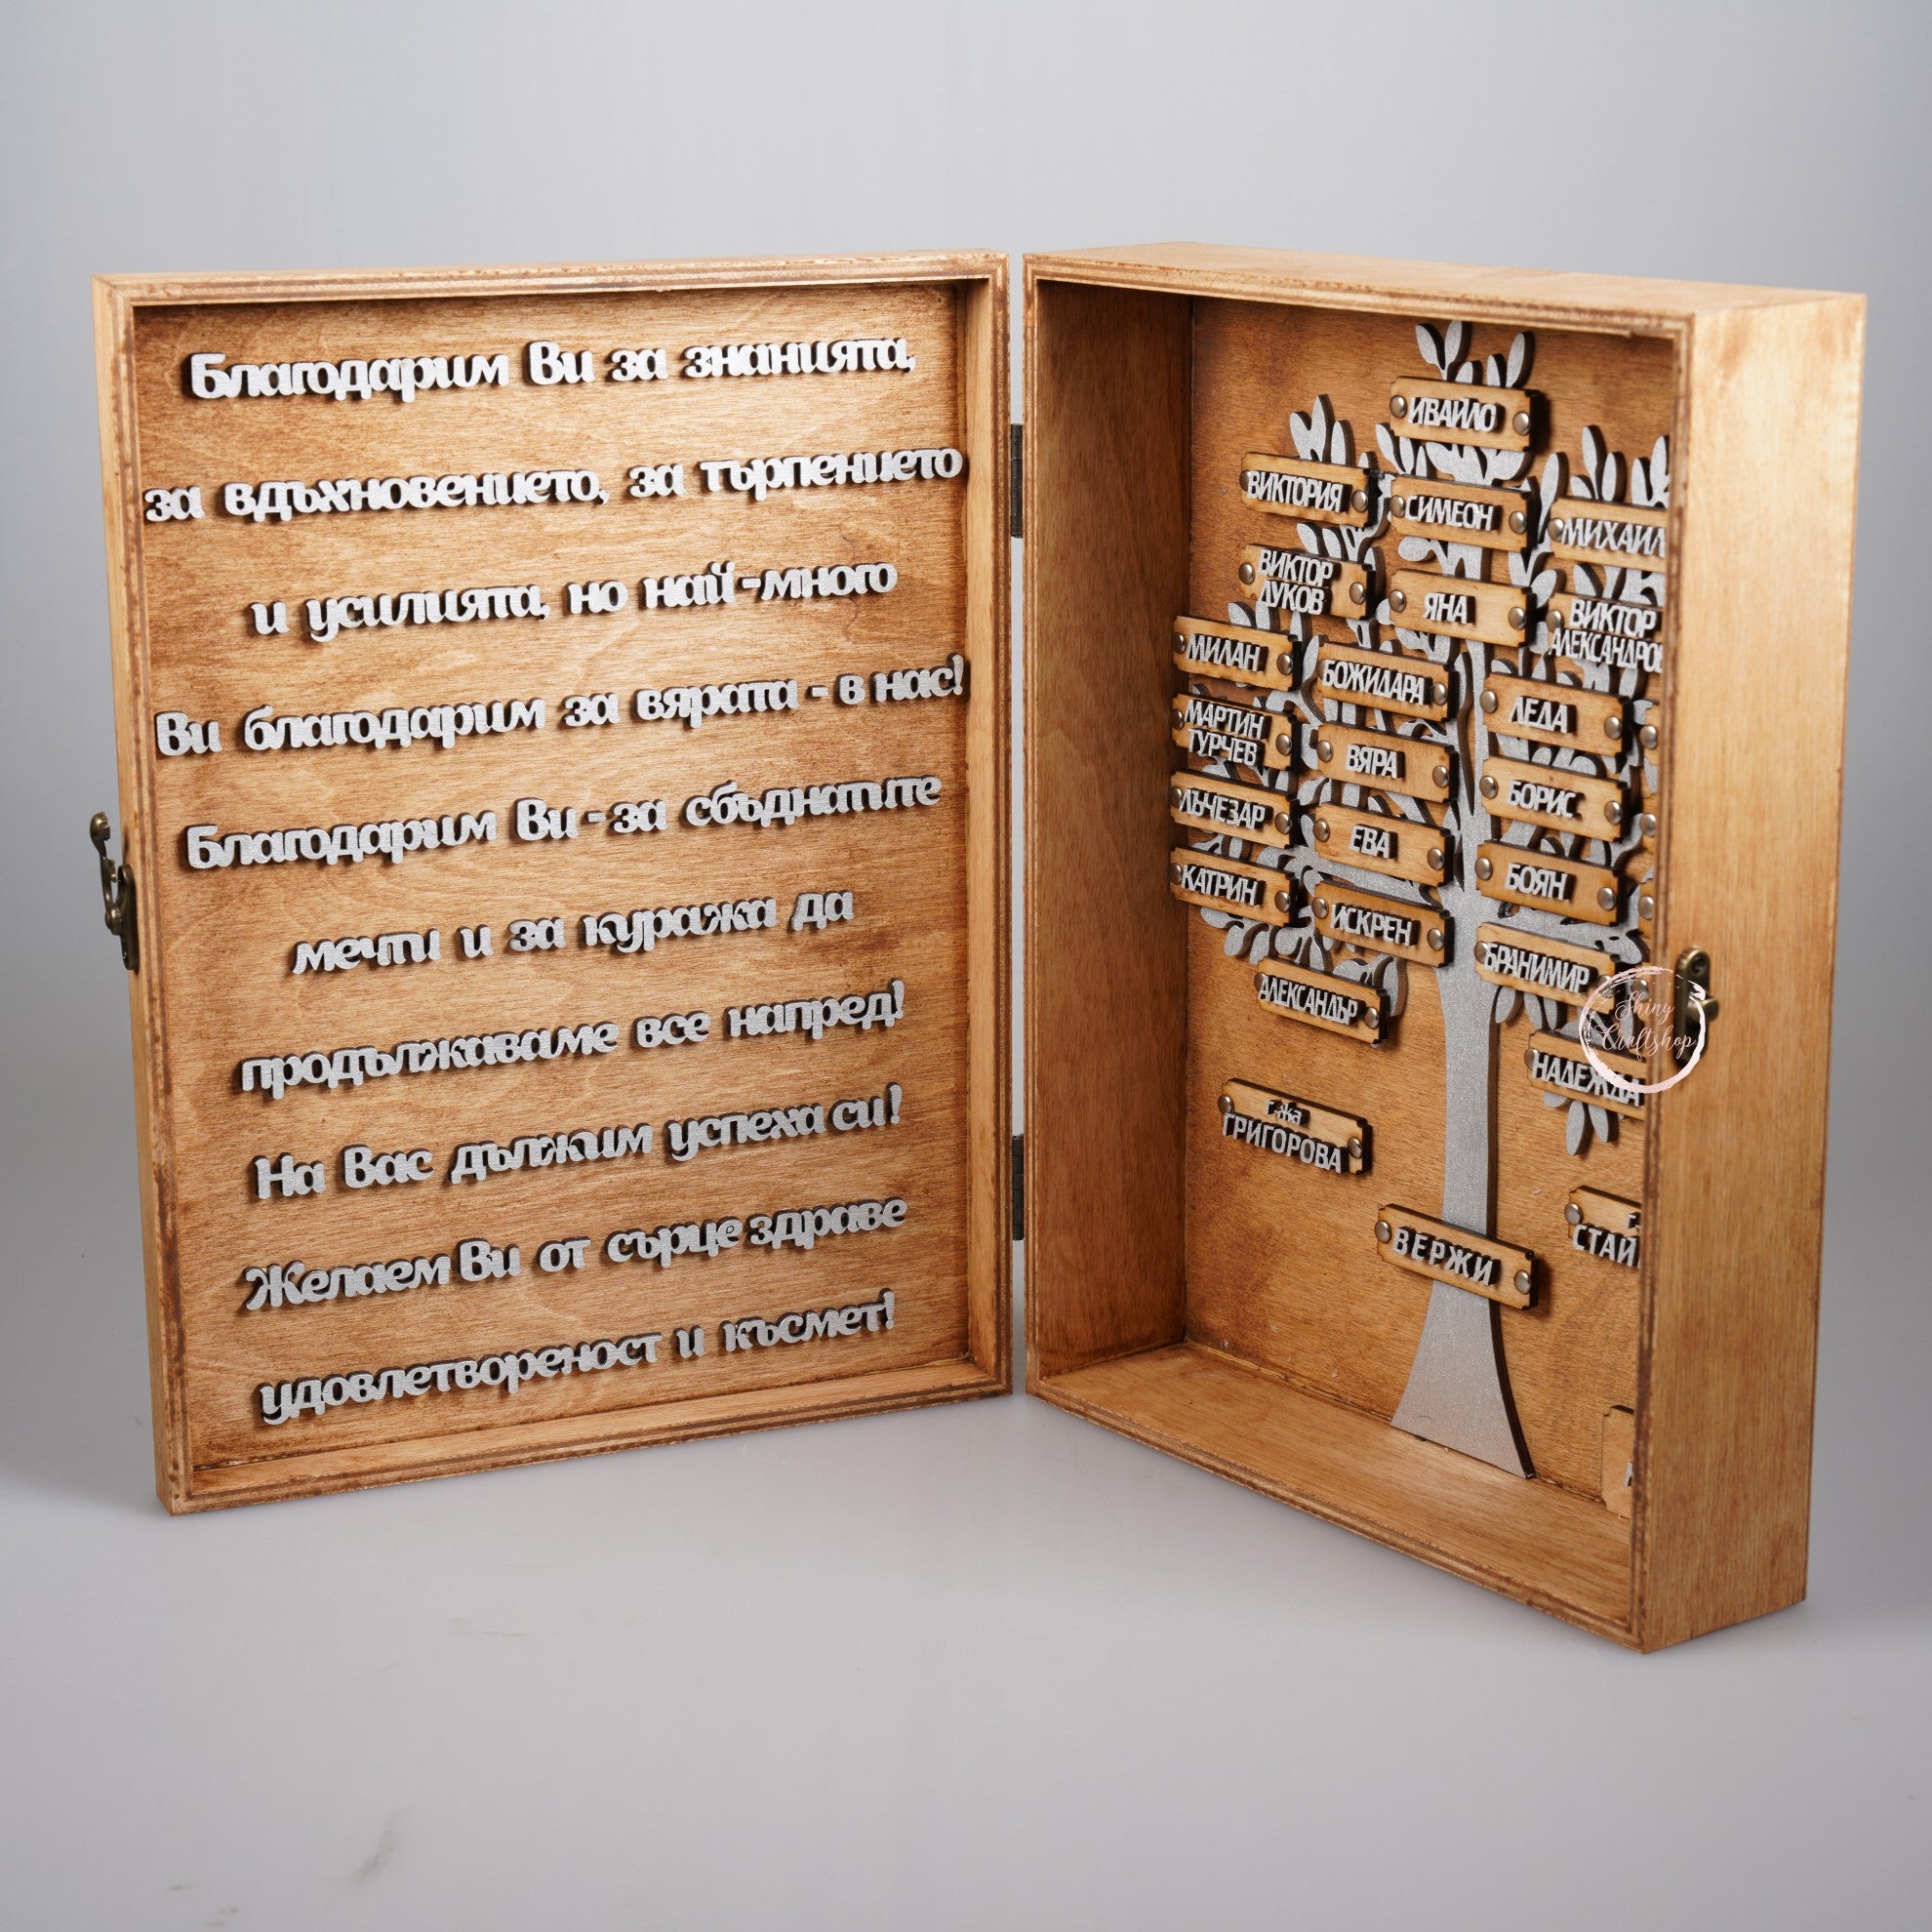 Благодарим Ви за знанията,
за вдъхновението, за търпението
и усилията, но най-много
Ви благодарим за вярата - в нас!
Благодарим Ви - за сбъднатите
мечти и за куража да
продължаваме все напред!
На Вас дължим успеха си!
Желаем Ви от сърце здраве
удовлетвореност и късмет!
ИВАЙЛО
ВИКТОРИЯ
СИМЕОН
МИХАИЛ
ВИКТОР
ДУКОВ
ЯНА
ВИКТОР
АЛЕКСАНДРОВ
МИЛАН
БОЖИДАРА
ЛЕДА
МАРТИН
ТУРЧЕВ
ВЯРА
БОРИС
ЛЪЧЕЗАР
ЕВА
БОЯН
КАТРИН
ИСКРЕН
БРАНИМИР
АЛЕКСАНДЪР
НАДЕЖДА
Shiny
Craftshop
Г-жа
ГРИГОРОВА
СТАЙ
ВЕРЖИ